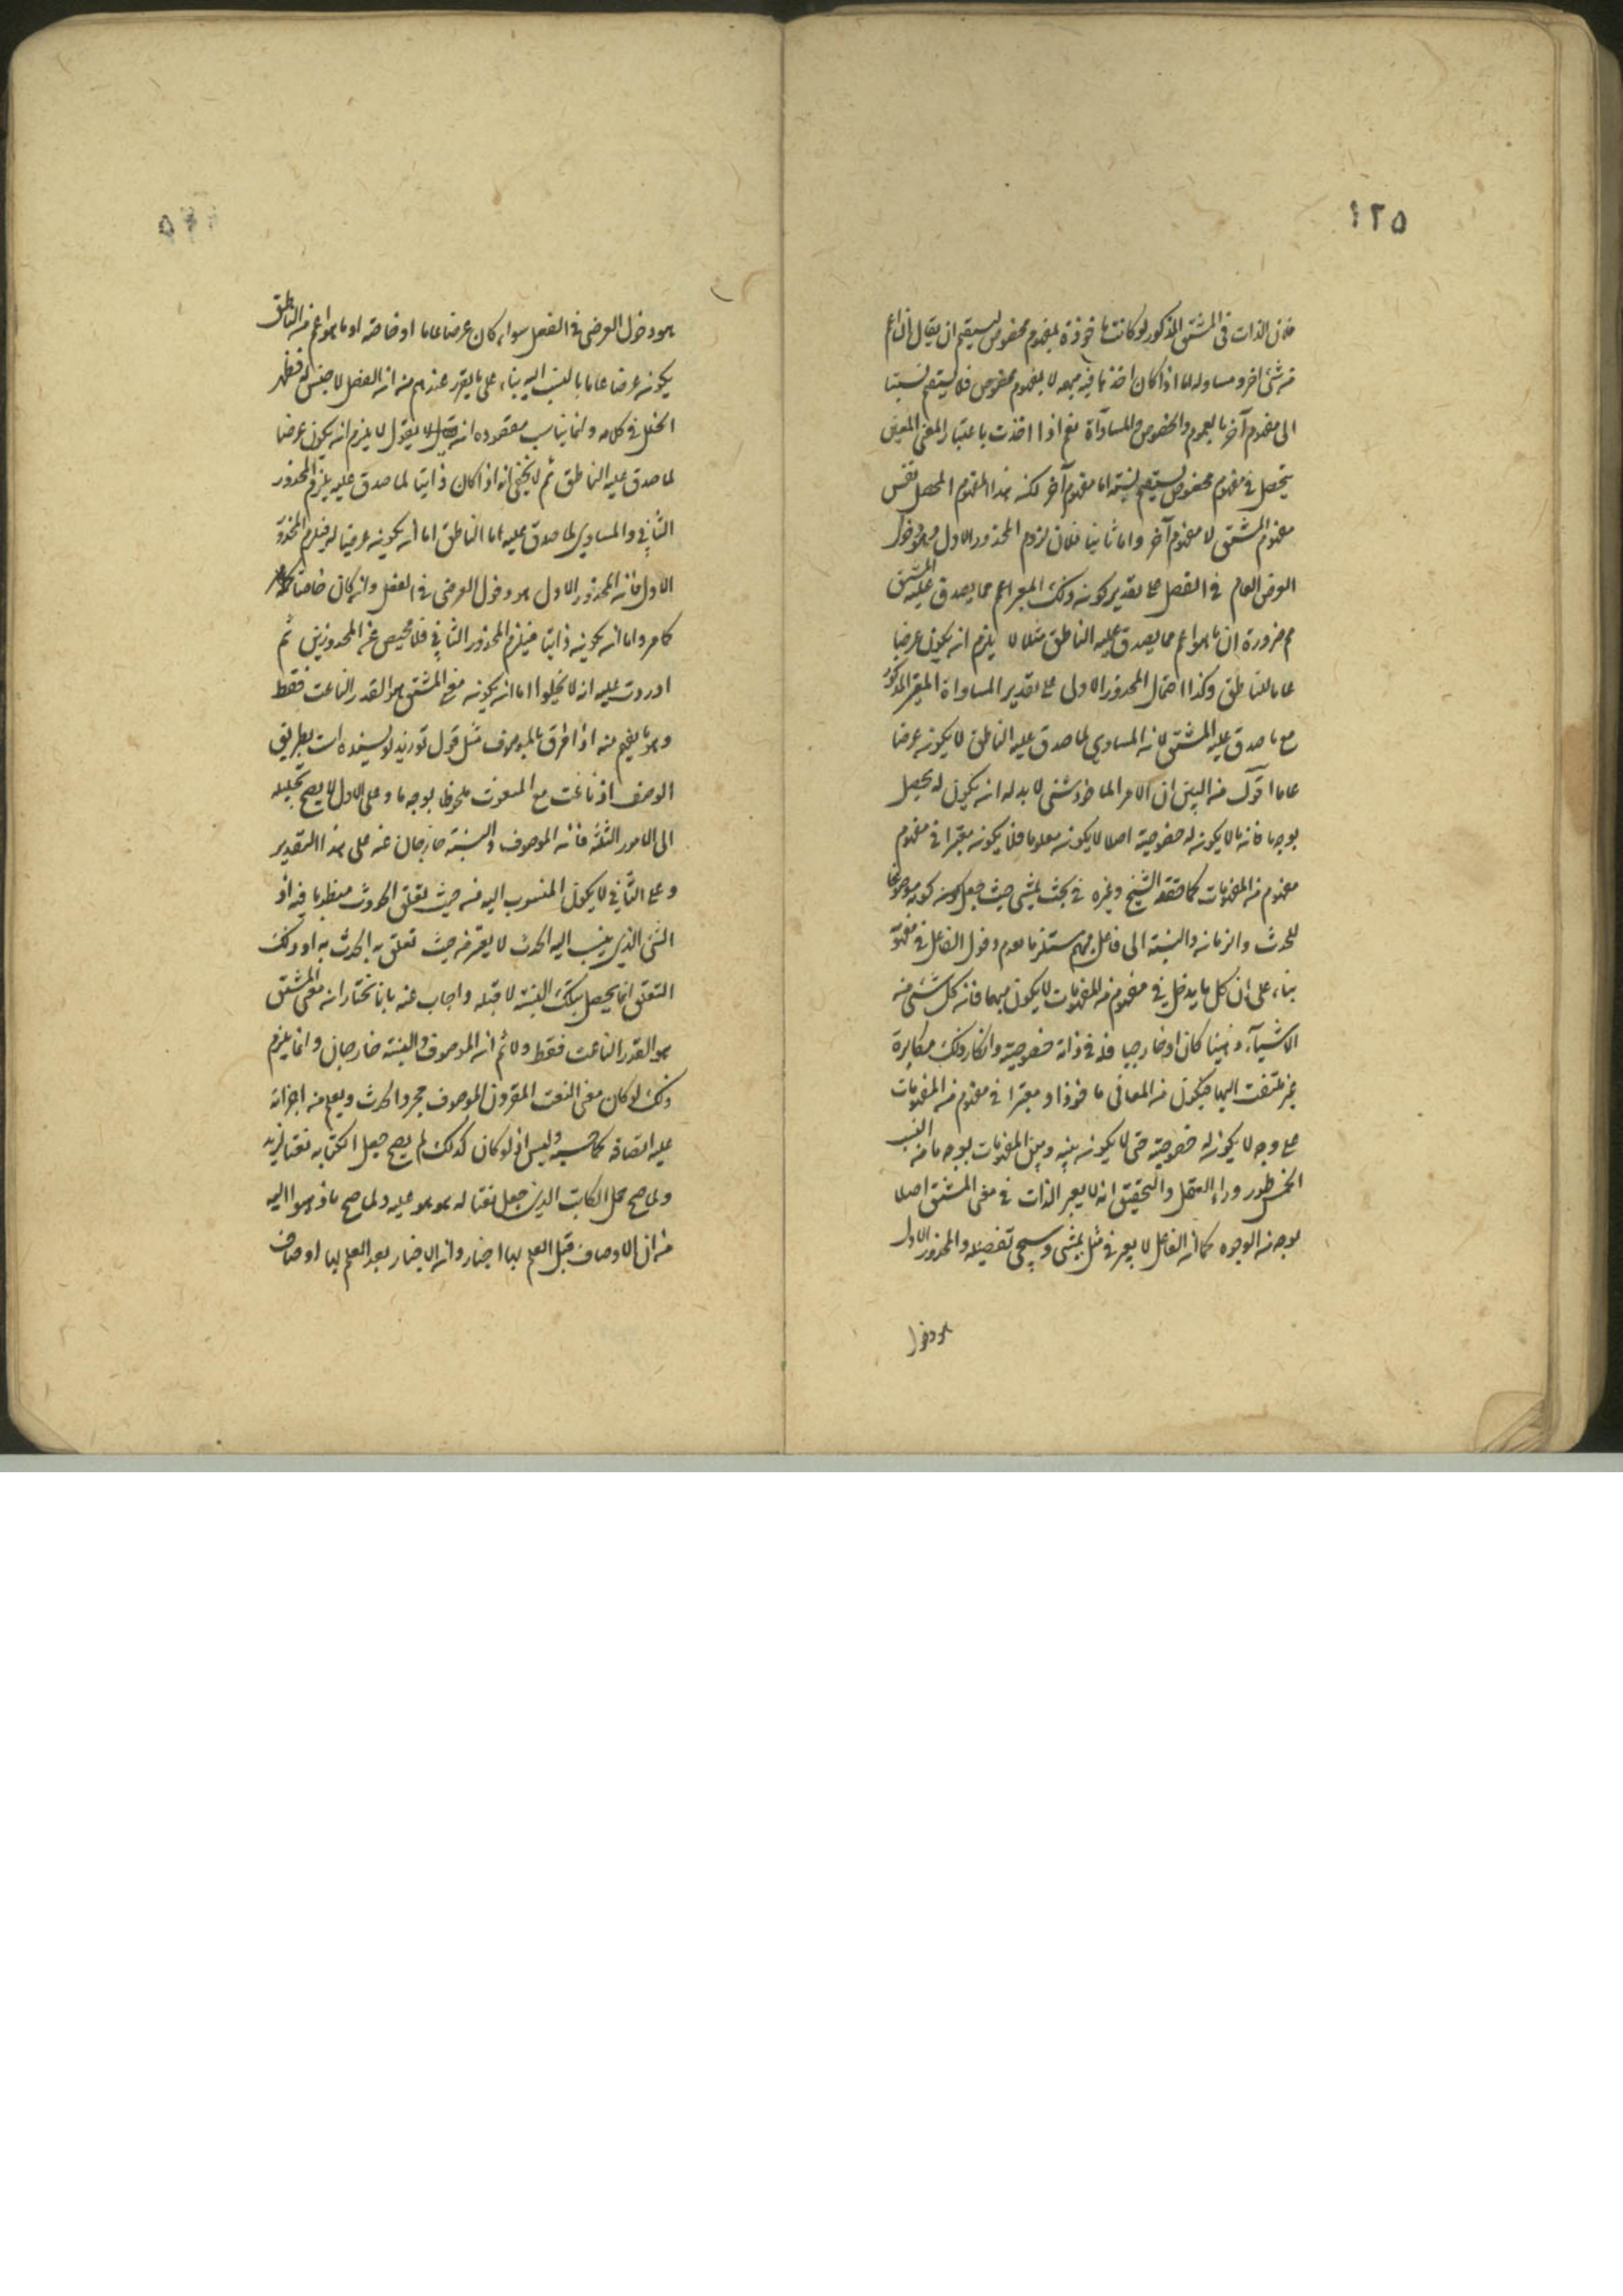 ١٢٥
فلان الذات فى المشتق المذكور لو كانت ماخوذة بمفهوم مخصوص يستقيم ان يقال انه اعم
من شئ اخر ومساو له اما اذا كان اخذها فيه مبهمة لا بمفهوم مخصوص فلا يستقيم نسبتها
الى مفهوم آخر بالعموم والخصوص والمساواة نعم اذا اخذت باعتبار المعنى المعين
يتحصل فى مفهوم مخصوص يستقيم نسبته الى مفهوم آخر لكنه هذا المفهوم المحصل نفس
مفهوم المشتق لا مفهوم آخر واما ثانيا فلان لزوم المحذور الاول وهو دخول
العرض العام فى الفصل على تقدير كونه ذلك المعتبر اعم مما يصدق عليه المشتق
مم ضرورة ان ما هو اعم مما يصدق عليه الناطق مثلا لا يلزم انه يكون عرضيا
عاما للناطق وكذا احتمال المحذور الاول على تقدير المساواة المعتبر المذكور
مع ما صدق عليه المشتق لانه المساوى لما صدق عليه الناطق لا يكونه عرضا
عاما اقول من البين ان الامر الماخوذ فى شئ لا بد له انه يكون له تحصيل
بوجه ما فانه ما لا يكونه له خصوصية اصلا لا يكونه معلوما فلا يكونه معتبرا فى مفهوم
مفهوم من المفهومات كما حققه الشيخ وغيره فى بحث يمشى حيث جعل كونه موضوعا
للحدث والزمانه والنسبة الى فاعل مبهم مستلزما لعدم دخول الفاعل فى مفهومه
بناء على ان كل ما يدخل فى مفهوم من المفهومات لا يكون مبهما فانه كل شئ من
الاشياء ذهنيا كان او خارجيا فله فى ذاته خصوصية وانكار ذلك مكابرة
غير ملتفت اليها فيكون من المعانى ماخوذا ومعتبرا فى مفهوم من المفهومات
على وجه لا يكونه له خصوصية حتى لا يكونه بينه وبين المفهومات بوجه ما من النسب
الخمس طور وراء العقل والتحقيق انه لا يعتبر الذات فى معنى المشتق اصلا
بوجه من الوجوه كما ان الفاعل لا يعتبر فى مثل يمشى وسيجئ تفصيله والمحذور الاول
هو دخول
هو دخول العرضى فى الفصل سواء كان عرضا عاما او خاصة او ما هو اعم من الناطق
يكونه عرضا عاما بالنسبة اليه بناء على ما يقرر عندهم من انه الفصل لا جنس له فظهر
الخلل فى كلامه وانما يناسب مقصوده انه يقول لا يلزم انه يكون عرضا
لما صدق عليه الناطق ثم لا يخفى انه اذا كان ذاتيا لما صدق عليه يلزم المحذور
الثانى والمساوى لما صدق عليه الناطق اما انه يكونه عرضيا له فيلزم المحذور
الاول فانه المحذور الاول هو دخول العرضى فى الفصل وانه كان خاصة
كما مر واما انه يكونه ذاتيا فيلزم المحذور الثانى فلا محيص عن المحذورين ثم
اوردت عليه انه لا يخلوا اما انه يكونه معنى المشتق هو القدر الناعت فقط
وهو ما يفهم منه اذا افرق بالموصوف مثل قول تو زيد نويسنده است بطريق
الوصف او ناعت مع المنعوت ملحوظا بوجه ما وعلى الاول لا يصح تحليله
الى الامور الثلثة فانه الموصوف والنسبة خارجان عنه على هذا التقدير
وعلى الثانى لا يكون المنسوب اليه من حيث تعلق الحدوث منظورا فيه اذ
الشئ الذى ينسب اليه الحدث لا يعتبر من حيث تعلق به الحدث به او ذلك
التعلق انما يحصل بتلك النسبة لا قبله واجاب عنه بانا نختار انه معنى المشتق
هو القدر الناعت فقط ولا ثم انه الموصوف والنسبة خارجان وانما يلزم
ذلك لو كان معنى النعت المقرون الموصوف مجرد الحدث ويعلم من اجزائه
عليه اتصافه كما حسبه وليس اذ لو كان كذلك لم يصح جعل الكتابه نعتا لزيد
ولما صح حمل الكاتب الذى جعل نعتا له هو هو عليه ولما صح ما ذهبوا اليه
من ان الاوصاف قبل العلم بها اخبار وانه الاخبار بعد العلم بها اوصاف